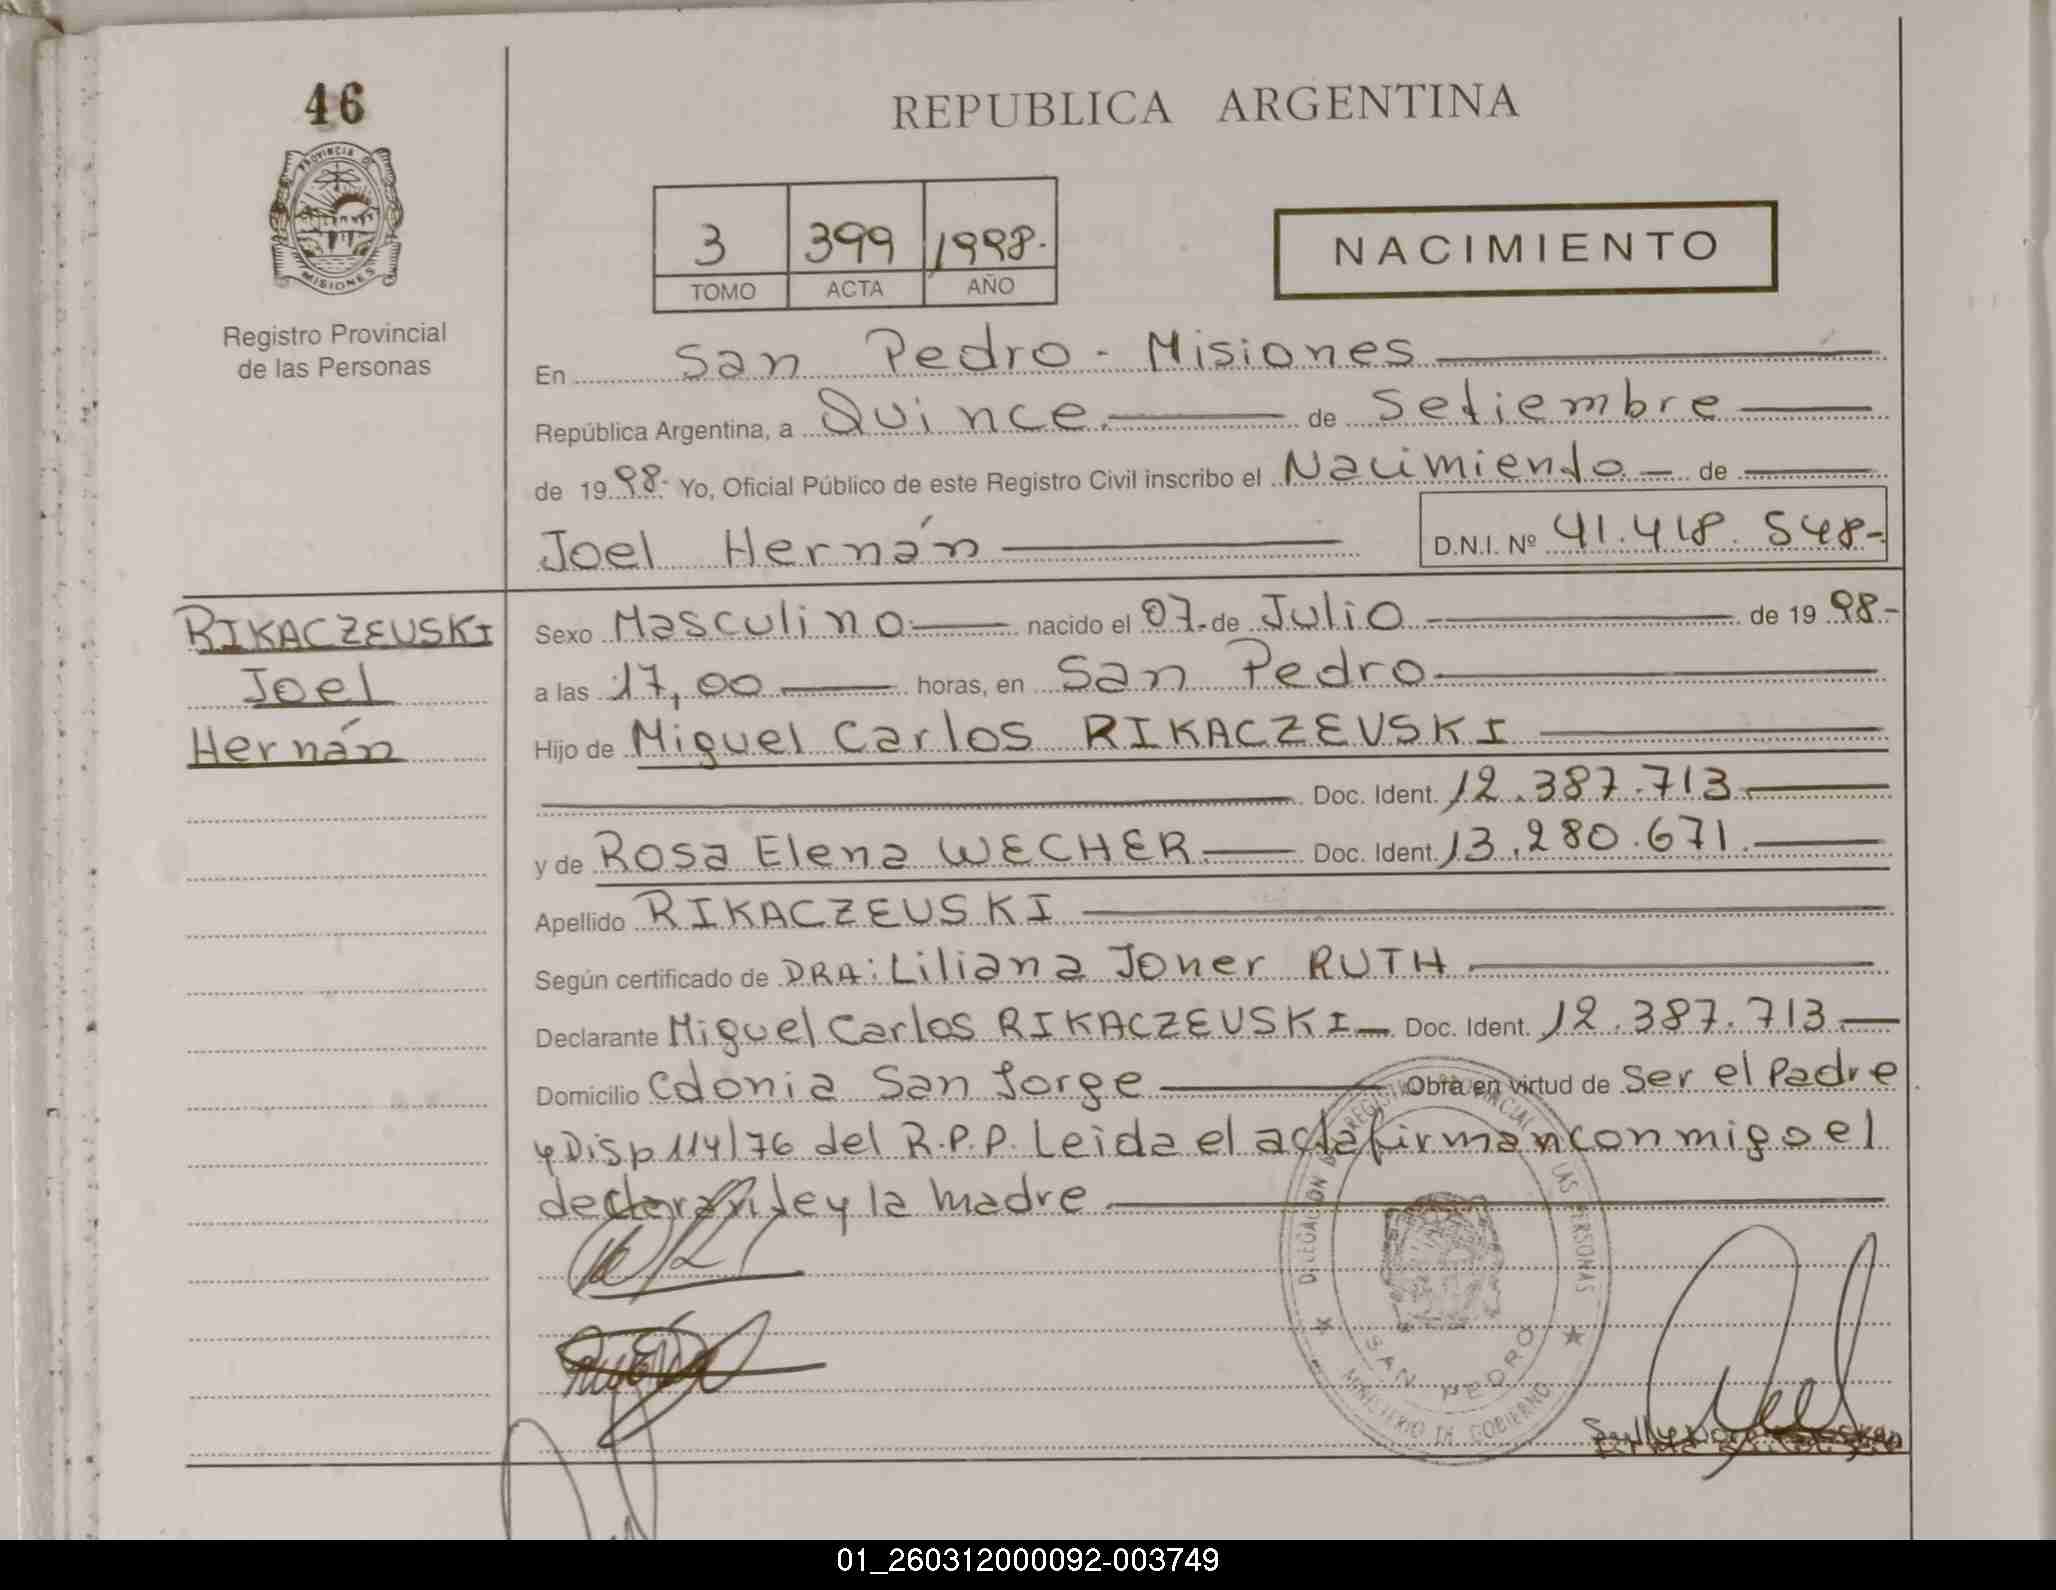 46
PROVINCIA DE MISIONES
Registro Provincial
de las Personas
REPUBLICA ARGENTINA
3 399 1998.
TOMO ACTA AÑO
NACIMIENTO
En San Pedro - Misiones
República Argentina, a Quince de Setiembre
de 1998- Yo, Oficial Público de este Registro Civil inscribo el Nacimiento - de
Joel Hernán D.N.I. Nº 41.418.548-
RIKACZEUSKI
Joel
Hernán
Sexo Masculino nacido el 07 de Julio de 1998-
a las 17,00 horas, en San Pedro
Hijo de Miguel Carlos RIKACZEUSKI
Doc. Ident. 12.387.713
y de Rosa Elena WECHER Doc. Ident. 13.280.671
Apellido RIKACZEUSKI
Según certificado de DRA: Liliana Joner RUTH
Declarante Miguel Carlos RIKACZEUSKI Doc. Ident. 12.387.713
Domicilio Colonia San Jorge Obra en virtud de Ser el Padre
y Disp 114/76 del R.P.P. Leida el acta firman conmigo el
declarante y la madre
DELEGACION DE REGISTRO PROVINCIAL DE LAS PERSONAS
SAN PEDRO
MINISTERIO DE GOBIERNO
01_260312000092-003749